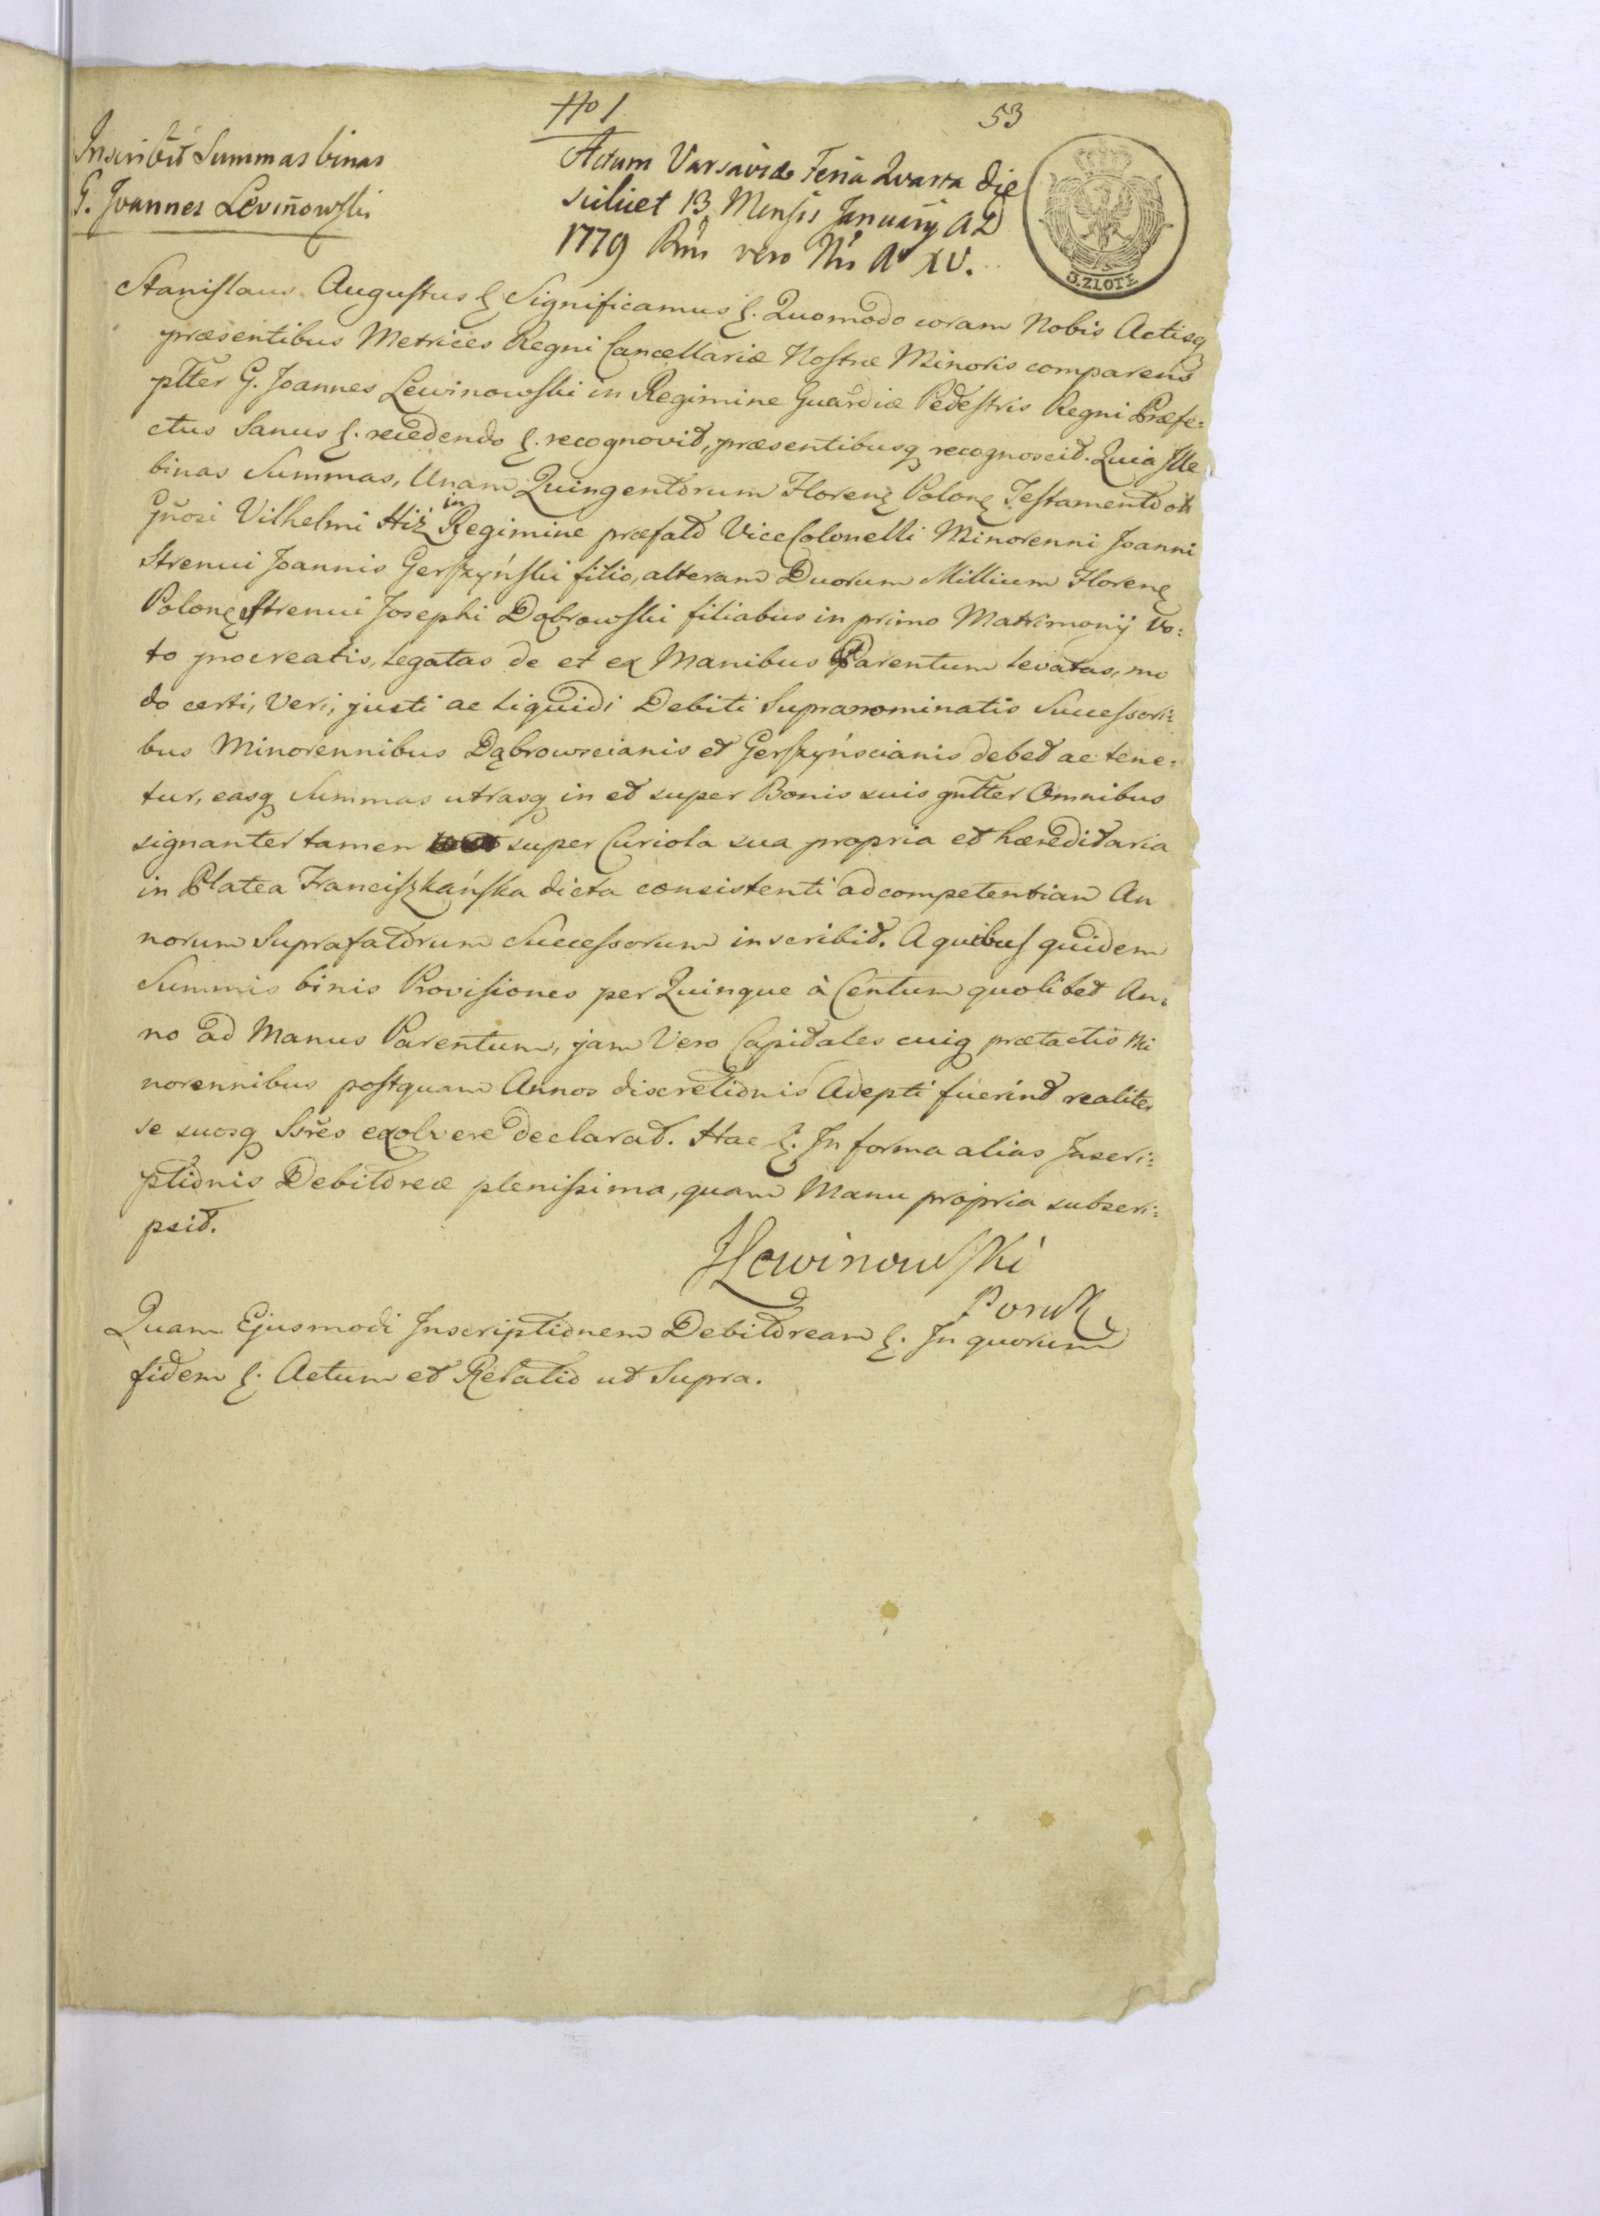 No 1
53
Inscribit Summas binas
G. Joannes Leviñowski
Actum Varsaviæ Feria Quarta Die
scilicet 13 Mensis Januarij A D
1779 Rni vero Nri Aº XV.
3. ZLOTE
Stanislaus Augustus &. Significamus &. Quomodo coram Nobis Actisq
præsentibus Metrices Regni Cancellariæ Nostræ Minoris comparens
plter G. Joannes Lewinowski in Regimine Guardiæ Pedestris Regni Præfe:
ctus Sanus &. recedendo &. recognovit, præsentibusq recognoscit. Quia Ille
binas Summas, Unam Quingentorum Floren Polon Testamento olt
Gñosi Vilhelmi Hiż in Regimine præfato ViceColonelli Minorenni Joanni
Strenui Joannis Gerszyński filio, alteram Duorum Millium Floren
Polon Strenui Josephi Dąbrowski filiabus in primo Matrimonij Vo:
to procreatis, Legatas de et ex Manibus Parentum levatas, mo
do certi, Veri, justi ac Liquidi Debiti Supranominatis Successori:
bus Minorennibus Dąbrowscianis et Gerszyńscianis debet ac tene:
tur, easq Summas utrasq in et super Bonis suis gnlter Omnibus
signanter tamen super Curiola sua propria et hæreditaria
in Platea Franciszkańska dicta consistenti ad competentiam An
norum Suprafatorum Successorum inscribit. A quibus quidem
Summis binis Provisiones per Quinque à Centum quolibet An:
no ad Manus Parentum, jam Vero Capitales cuiq prætactis Mi
norennibus postquam Annos discretionis Adepti fuerint realiter
se suosq Ssres exolvere declarat. Hac &. In forma alias Inscri:
ptionis Debitoreæ plenissima, quam Manu propria subscri:
psit.
JLewinowski
Poruk
Quam Ejusmodi Inscriptionem Debitoream &. In quorum
fidem &. Actum et Relatio ut Supra.